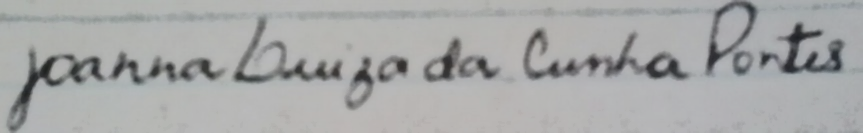 Joanna Luiza da Cunha Pontes